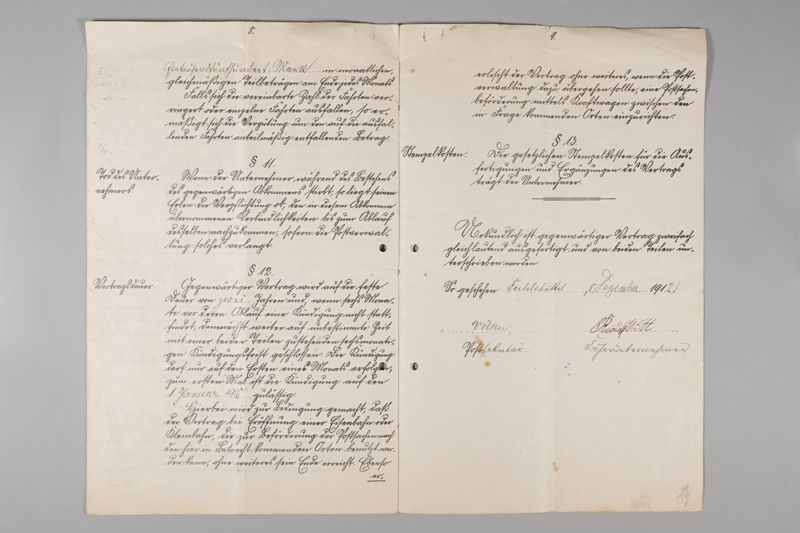 8.
Eintausendfünfhundert Mark in monatlichen
gleichmäßigen Teilbeträgen am Ende jedes Monats.
Falls sich die vereinbarte Zahl der Fahrten ver-
ringert oder einzelne Fahrten ausfallen, so er-
mäßigt sich die Vergütung um den auf die ausfal-
lenden Fahrten anteilmäßig entfallenden Betrag.
§ 11.
Tod des Unter-
nehmers
Wenn der Unternehmer während des Bestehens
des gegenwärtigen Abkommens stirbt, so liegt seinen
Erben die Verpflichtung ob, den in diesem Abkommen
übernommenen Verbindlichkeiten bis zum Ablauf
desselben nachzukommen, sofern die Postverwal-
tung solches verlangt.
§ 12.
Vertragsdauer.
Gegenwärtiger Vertrag wird auf die feste
Dauer von zwei Jahren und, wenn sechs Mona-
te vor deren Ablauf eine Kündigung nicht statt-
findet, demnächst weiter auf unbestimmte Zeit
mit einer beiden Teilen zustehenden sechsmonati-
gen Kündigungsfrist geschlossen. Die Kündigung
darf nur auf den Ersten eines Monats erfolgen,
zum ersten Mal ist die Kündigung auf den
1. Januar zulässig.
Hierbei wird zur Bedingung gemacht, daß
der Vertrag bei Eröffnung einer Eisenbahn oder
Kleinbahn, die zur Beförderung der Postsachen nach
den hier in Betracht kommenden Orten benutzt wer-
den kann, ohne weiteres sein Ende erreicht. Ebenso
er-
9.
erlischt der Vertrag ohne weiteres, wenn die Post-
verwaltung dazu übergehen sollte, eine Postsachen-
beförderung mittels Kraftwagen zwischen den
in Frage kommenden Orten einzurichten.
§ 13.
Stempelkosten.
Die gesetzlichen Stempelkosten für die Aus-
fertigungen und Ergänzungen des Vertrags
trägt der Unternehmer.
Urkundlich ist gegenwärtiger Vertrag zweifach
gleichlautend ausgefertigt und von beiden Teilen un-
terschrieben worden.
So geschehen Dezember 1912
Postsekretär
Fuhrunternehmer